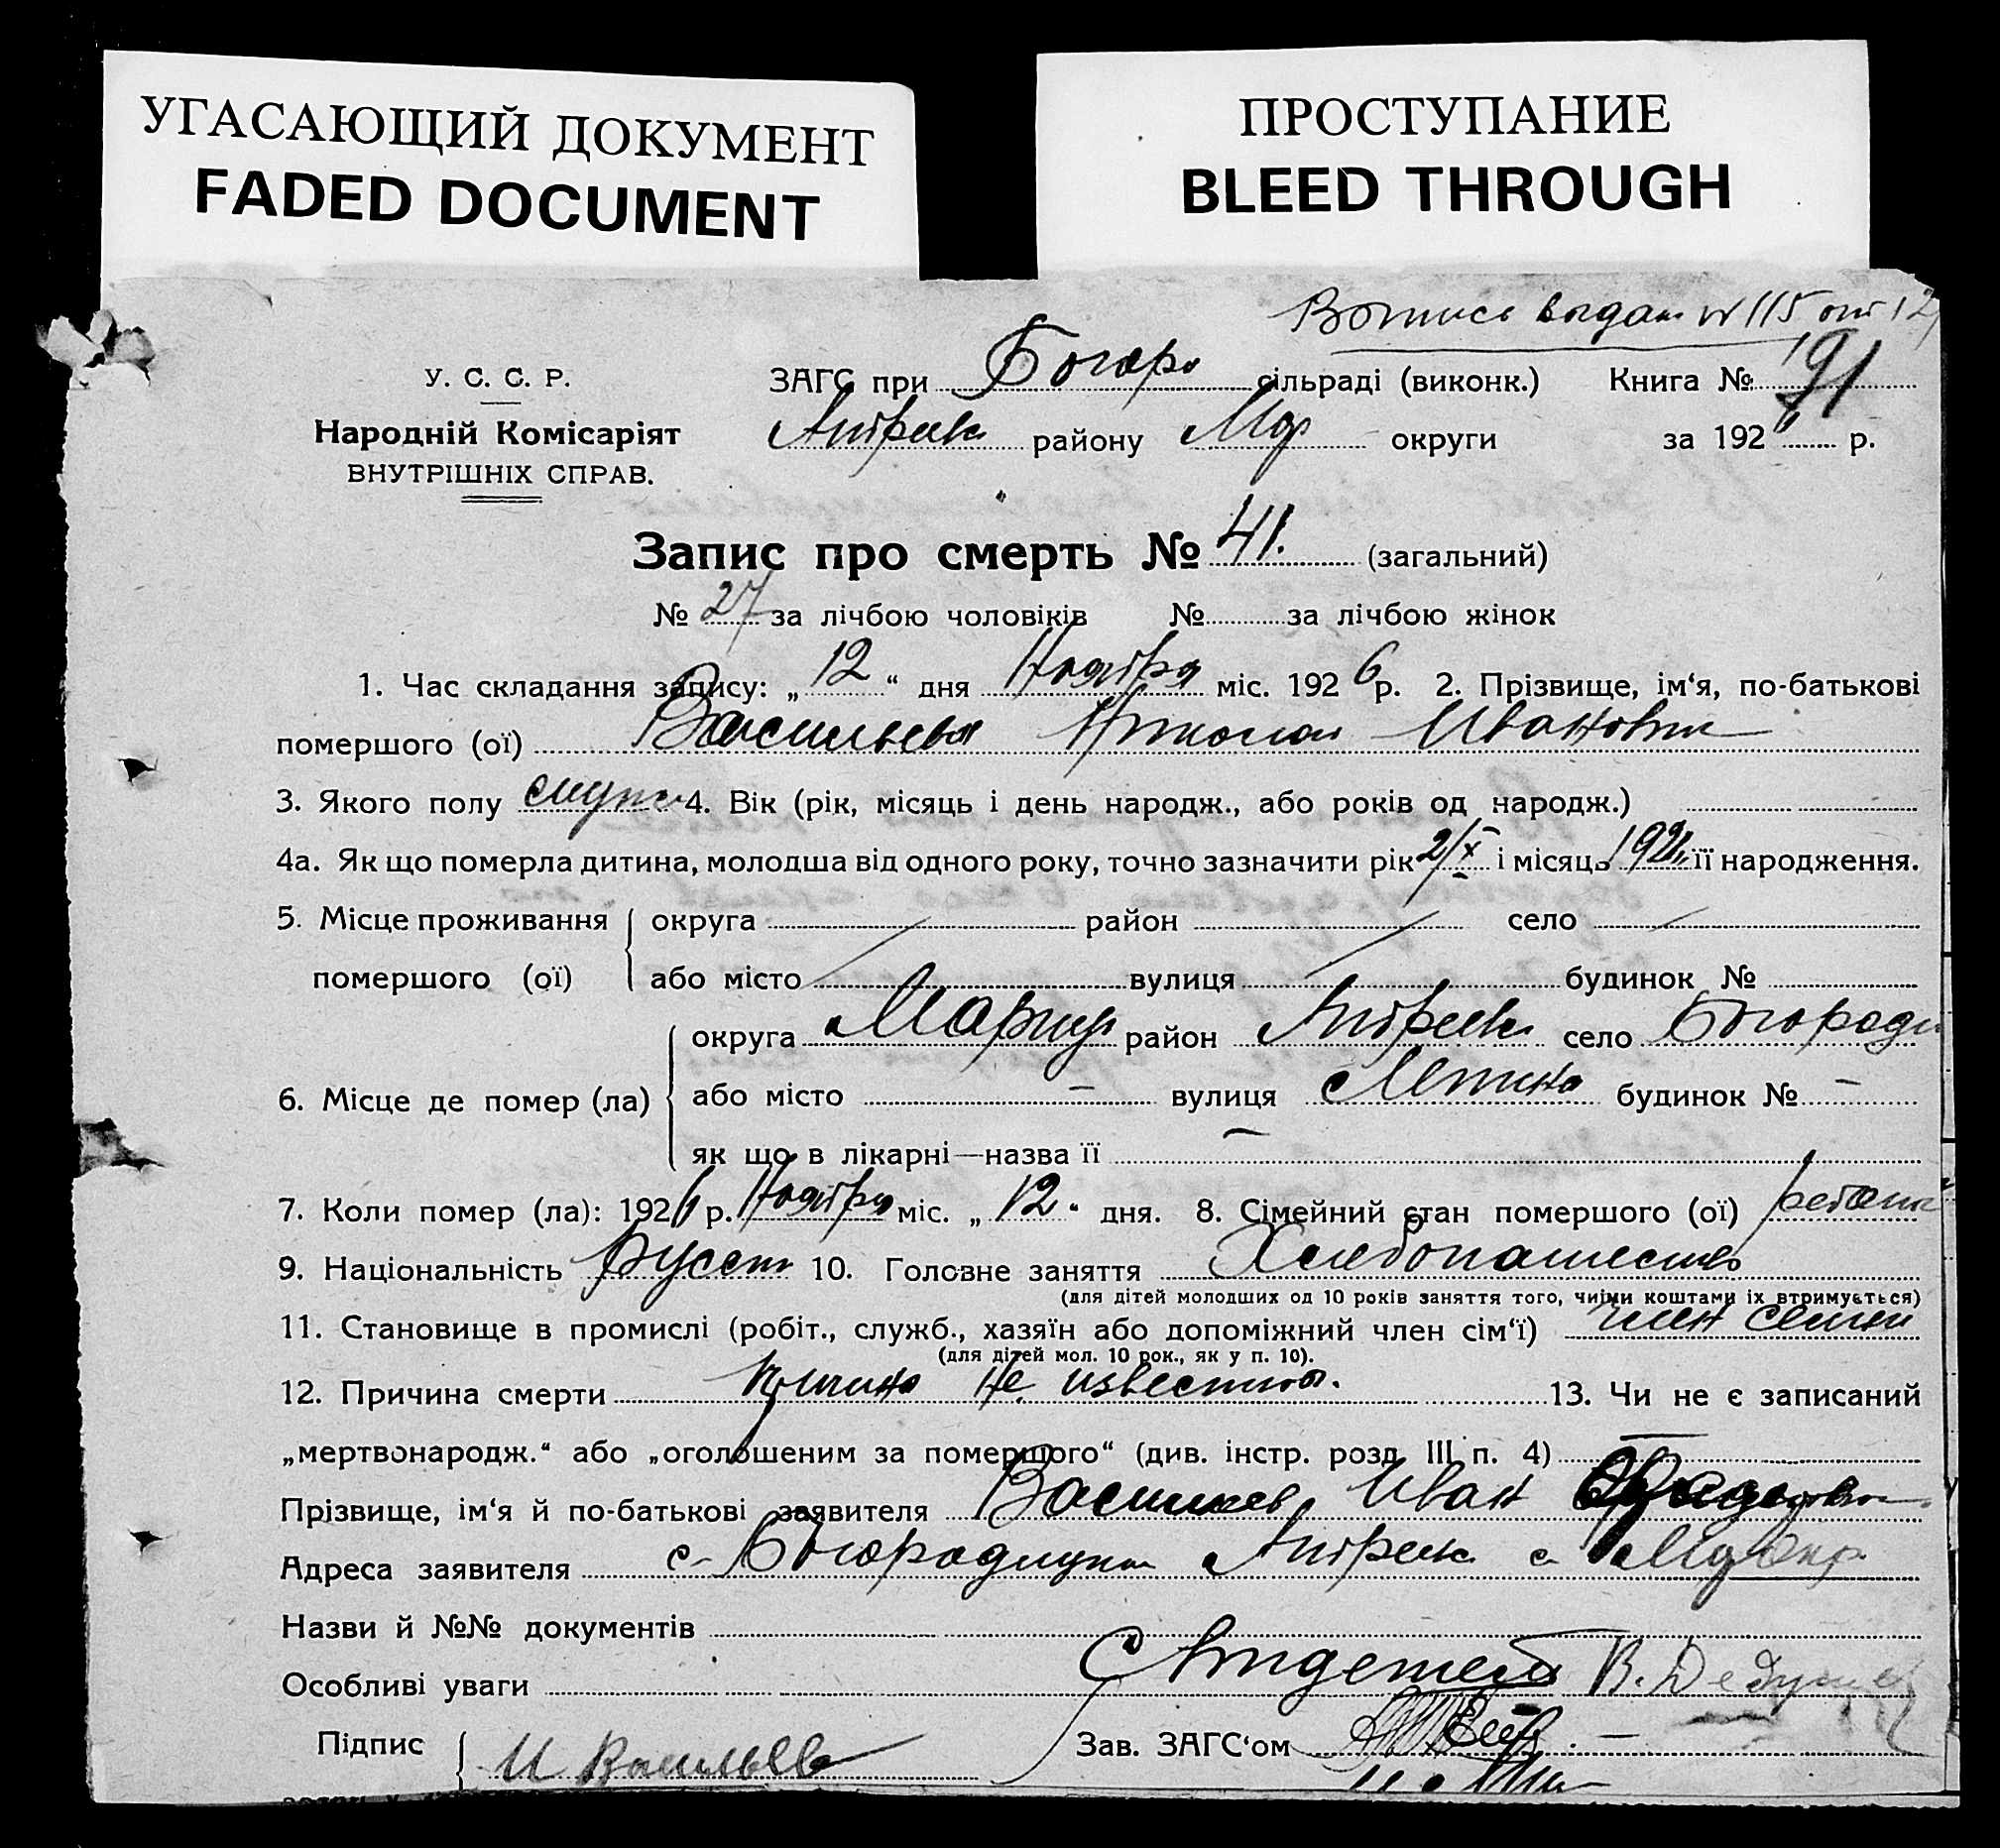 УГАСАЮЩИЙ ДОКУМЕНТ
FADED DOCUMENT
ПРОСТУПАНИЕ
BLEED THROUGH
выдан № 115 от 12
У. С. С. Р.
Народній Комісаріят
ВНУТРІШНІХ СПРАВ.
ЗАГС при Богоро сільраді (виконк.) Книга №
району Мар округи за 1926 р.
Запис про смерть № 41. (загальний)
№ 27 за лічбою чоловіків № за лічбою жінок
1. Час складання запису: „ 12 “ дня Ноября міс. 1926 р. 2. Прізвище, ім‘я, по-батькові
помершого (ої) Васильев Николай Иванович
3. Якого полу 4. Вік (рік, місяць і день народж., або років од народж.)
4а. Як що померла дитина, молодша від одного року, точно зазначити рік і місяць її народження.
5. Місце проживання округа район село
помершого (ої) або місто вулиця будинок №
округа Мариуп район село Богороди
6. Місце де помер (ла) або місто – вулиця будинок № –
як що в лікарні—назва її –
7. Коли помер (ла): 1926 р. Ноября міс. „ 12 “ дня. 8. Сімейний стан помершого (ої)
9. Національність русск 10. Головне заняття Хлебопашество
(для дітей молодших од 10 років заняття того, чиїми коштами їх втримується)
11. Становище в промислі (робіт., служб., хазяїн або допоміжний член сім‘ї) член семьи
(для дітей мол. 10 рок., як у п. 10).
12. Причина смерти не известна. 13. Чи не є записаний
„мертвонародж.“ або „оголошеним за померщого“ (див. інстр. розд. III п. 4) –
Прізвище, ім‘я й по-батькові заявителя Васильев Иван
Адреса заявителя с. Окр.
Назви й №№ документів
Особливі уваги Свидетель В.
Підпис И Васильев Зав. ЗАГС‘ом